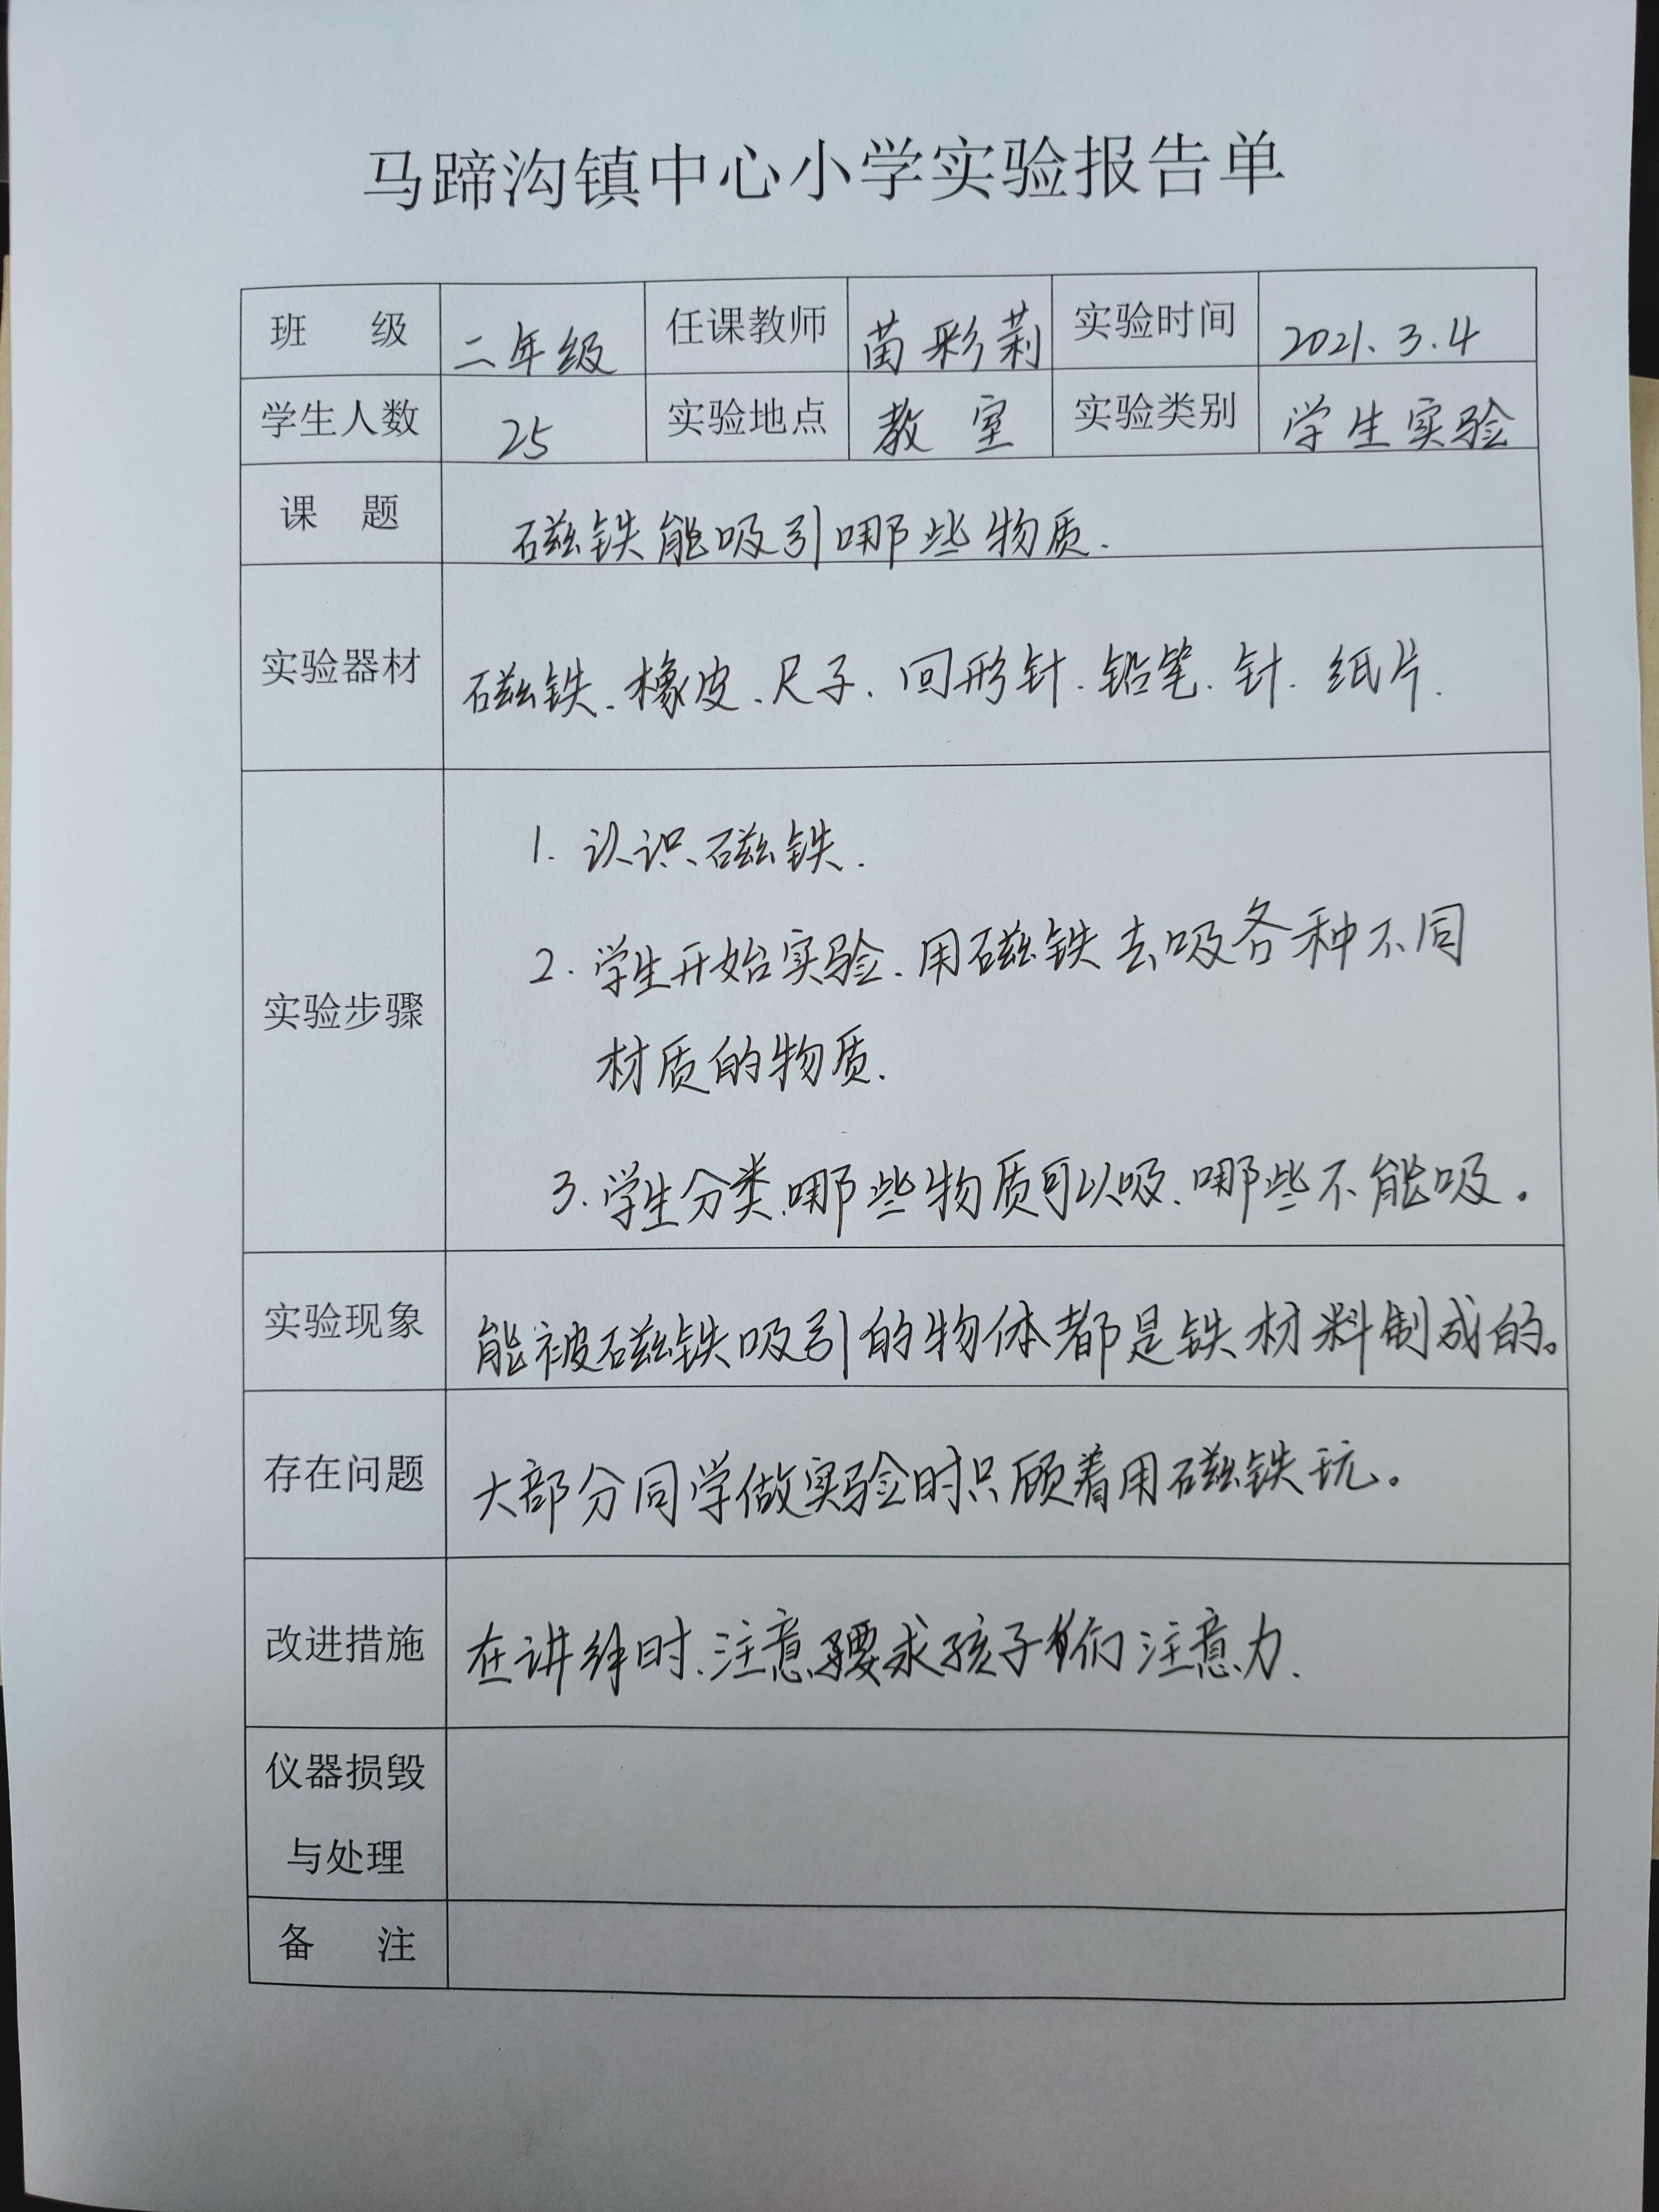 马蹄沟镇中心小学实验报告单
班 级 二年级 任课教师 苗彩莉 实验时间 2021.3.4
学生人数 25 实验地点 教室 实验类别 学生实验
课 题 磁铁能吸引哪些物质.
实验器材 磁铁、橡皮、尺子、回形针、铅笔、针、纸片.
1. 认识磁铁.
2. 学生开始实验、用磁铁去吸各种不同
实验步骤
材质的物质.
3. 学生分类、哪些物质可以吸、哪些不能吸。
实验现象 能被磁铁吸引的物体都是铁材料制成的。
存在问题 大部分同学做实验时只顾着用磁铁玩。
改进措施 在讲 时、注意要求孩子们注意力.
仪器损毁
与处理
备 注